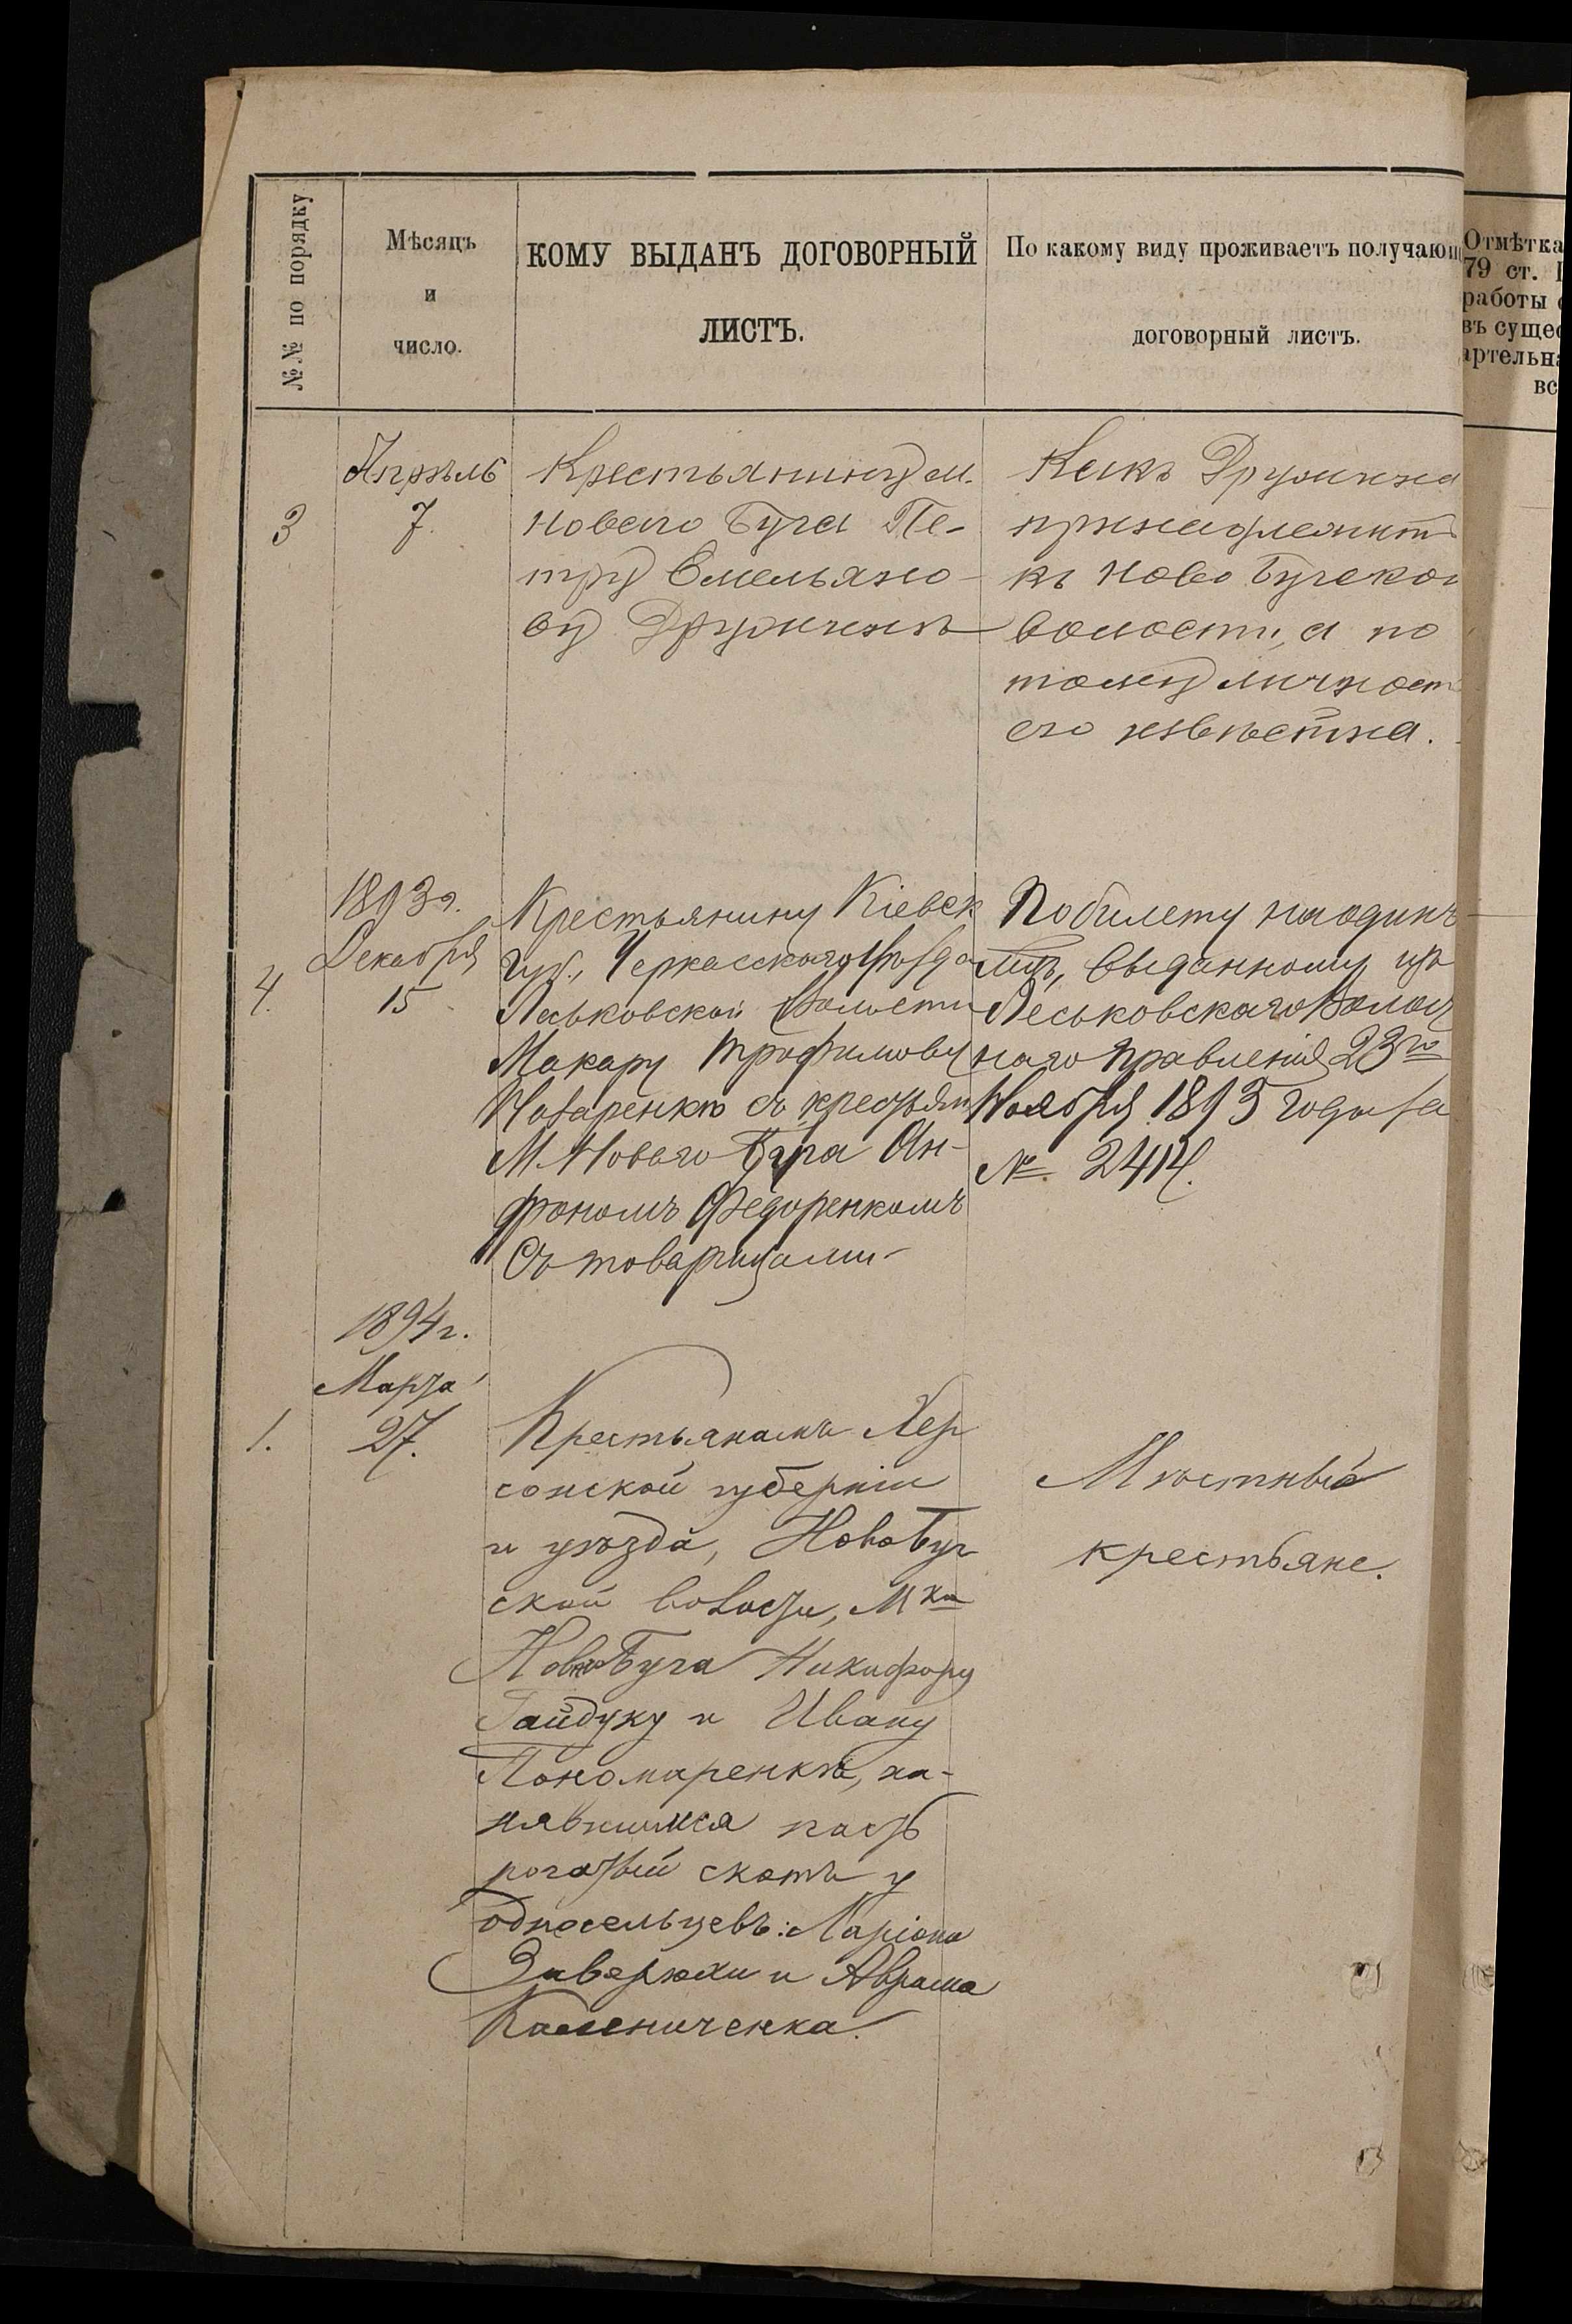 №№ по порядку
Мѣсяцъ
и
число.
КОМУ ВЫДАНЪ ДОГОВОРНЫЙ
ЛИСТЪ.
По какому виду проживаетъ получающ
договорный листъ.
Отмѣтка
79 ст.
работы
въ сущес
артельна
вс
3
Апрѣль
7.
Крестьянину м.
Новаго Буга Пе-
тру Омельяно-
ву Дружинѣ
Какъ Дружина
принадлежитъ
къ Ново Бугской
волости, а по
тому личност
его извѣстна.
4.
1893 г.
Декабря
15
Крестьянину Кіевск
губ., Черкасскаго уѣзда
Леськовской волости
Макару Трофимову
Назаренкѣ съ крестьян
М. Новаго Буга Ан-
фономъ Федоренкомъ
Съ товарищами-
По билету на одинъ
годъ, выданному изъ
Леськовскаго Волост
наго Правленія 23го
Ноября 1893 года за
№ 2414.
1.
1894 г.
Марта
27.
Крестьянамъ Хер
сонской губерніи
и уѣзда, Новобуг
ской волости, М ка
Новаго Буга Никифору
Гайдуку и Ивану
Пономаренкѣ, на-
нявшимся пасть
рогатый скотъ у
односельцевъ: Ларіона
Заверюхи и Аврама
Калениченка.
Мѣстные
крестьяне.